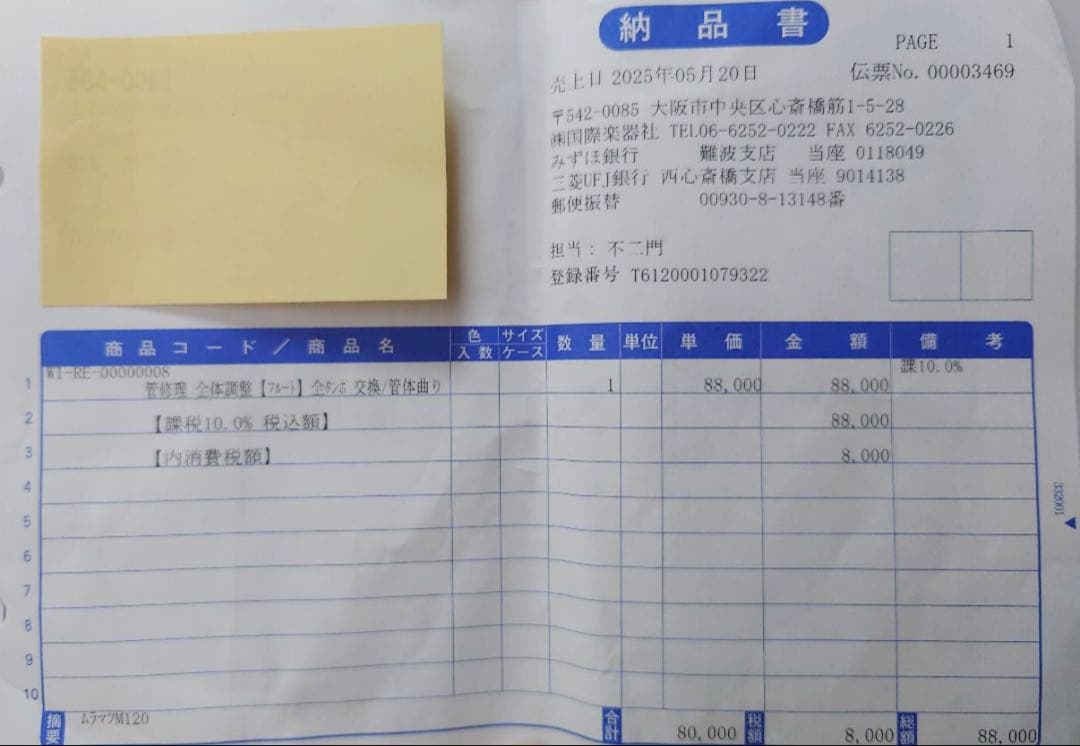 納品書
PAGE 1
売上日 2025年05月20日 伝票No. 00003469
〒542-0085 大阪市中央区心斎橋筋1-5-28
㈱国際楽器社 TEL06-6252-0222 FAX 6252-0226
みずほ銀行 難波支店 当座 0118049
三菱UFJ銀行 西心斎橋支店 当座 9014138
郵便振替 00930-8-13148番
担当: 不二門
登録番号 T6120001079322
商品コード/商品名 色 入数 サイズ ケース 数量 単位 単価 金額 備考
WI-RE-00000008 課10.0%
1 管修理 全体調整【フルート】全タンポ 交換/管体曲り 1 88,000 88,000
2 【課税10.0% 税込額】 88,000
3 【内消費税額】 8,000
4
5
6
7
8
9
10
332001
摘要 ムラマツM120 合計 80,000 税額 8,000 総額 88,000